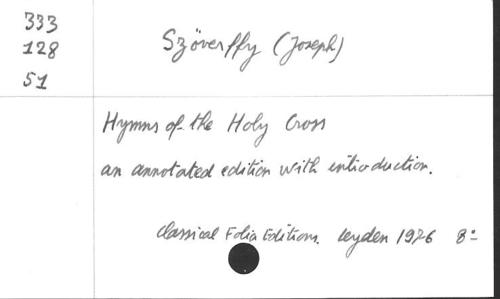 333
128
51
Szöverffy (Joseph)
Hymns of the Holy Cross
an annotated edition with introduction.
Classical Folia Editions. Leyden 1976 8º